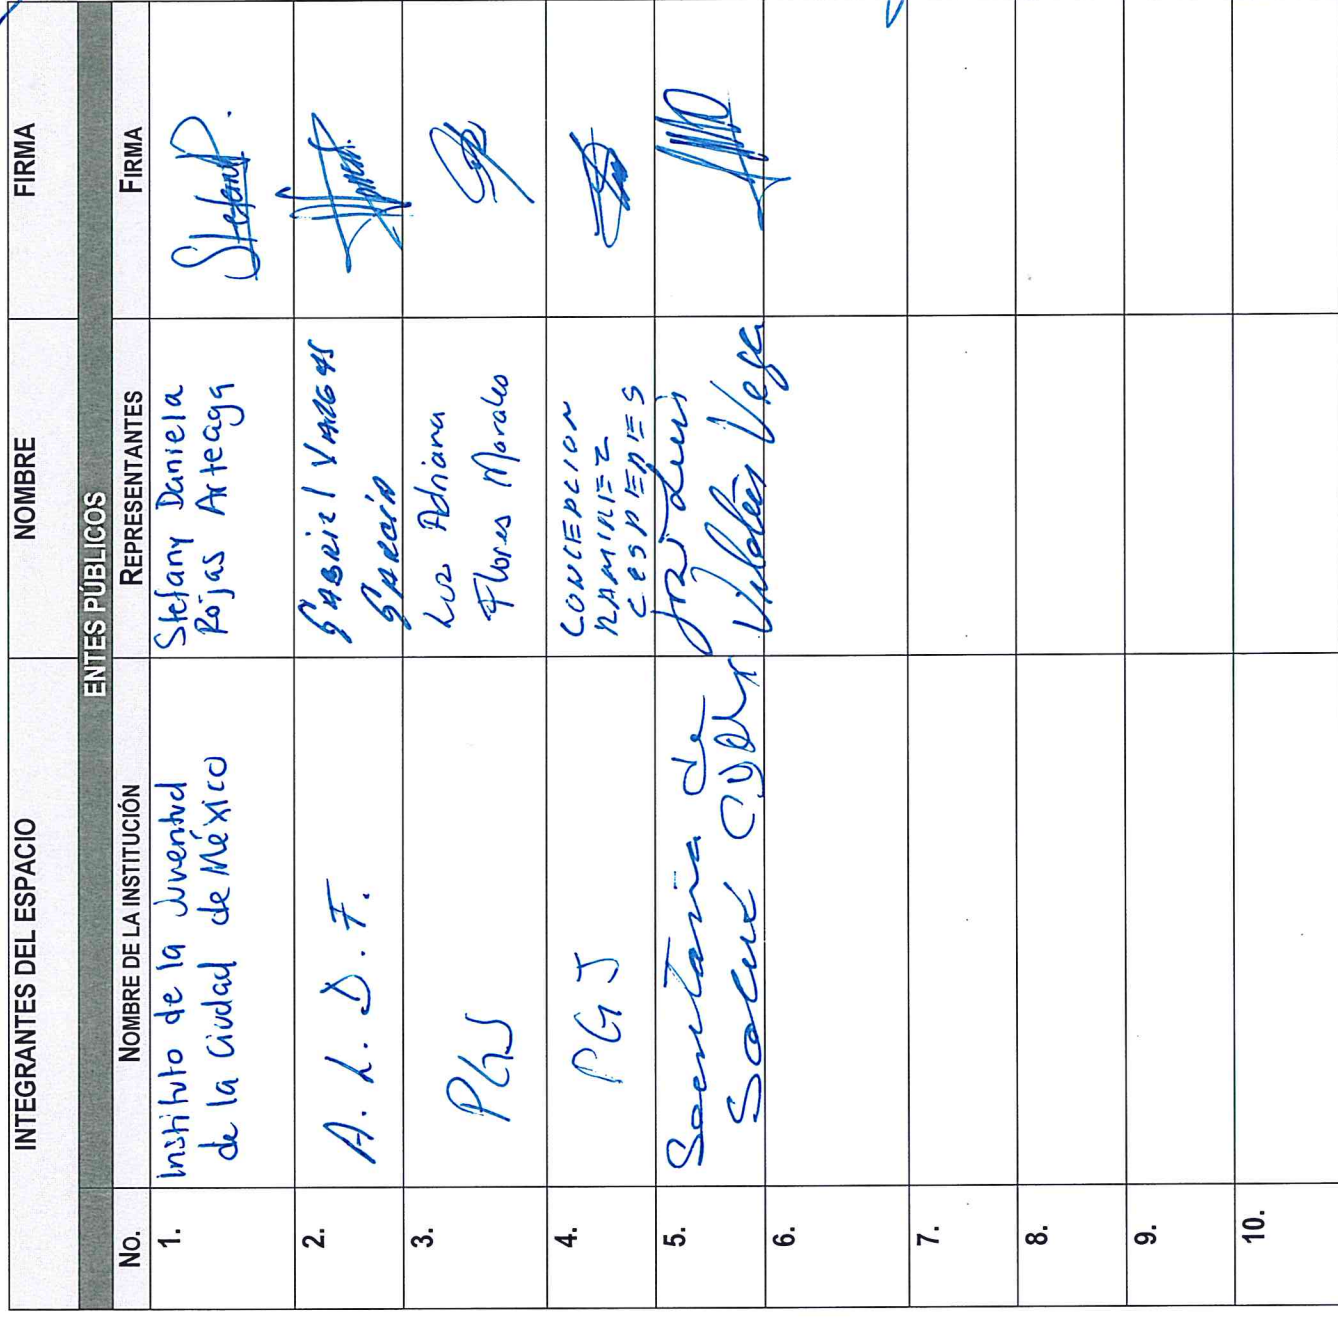 INTEGRANTES DEL ESPACIO NOMBRE FIRMA
ENTES PÚBLICOS
NO. NOMBRE DE LA INSTITUCIÓN REPRESENTANTES FIRMA
1. Instituto de la Juventud Stefany Daniela
de la Ciudad de México Rojas Arteaga
2. A. L. D. F. Gabriel Vargas
García
3. PGJ Luz Adriana
Flores Morales
4. PGJ CONCEPCION
RAMIREZ
CESPEDES
5. Secretaría de José Luis
Salud CDMX Valdés Vega
6.
7.
8.
9.
10.